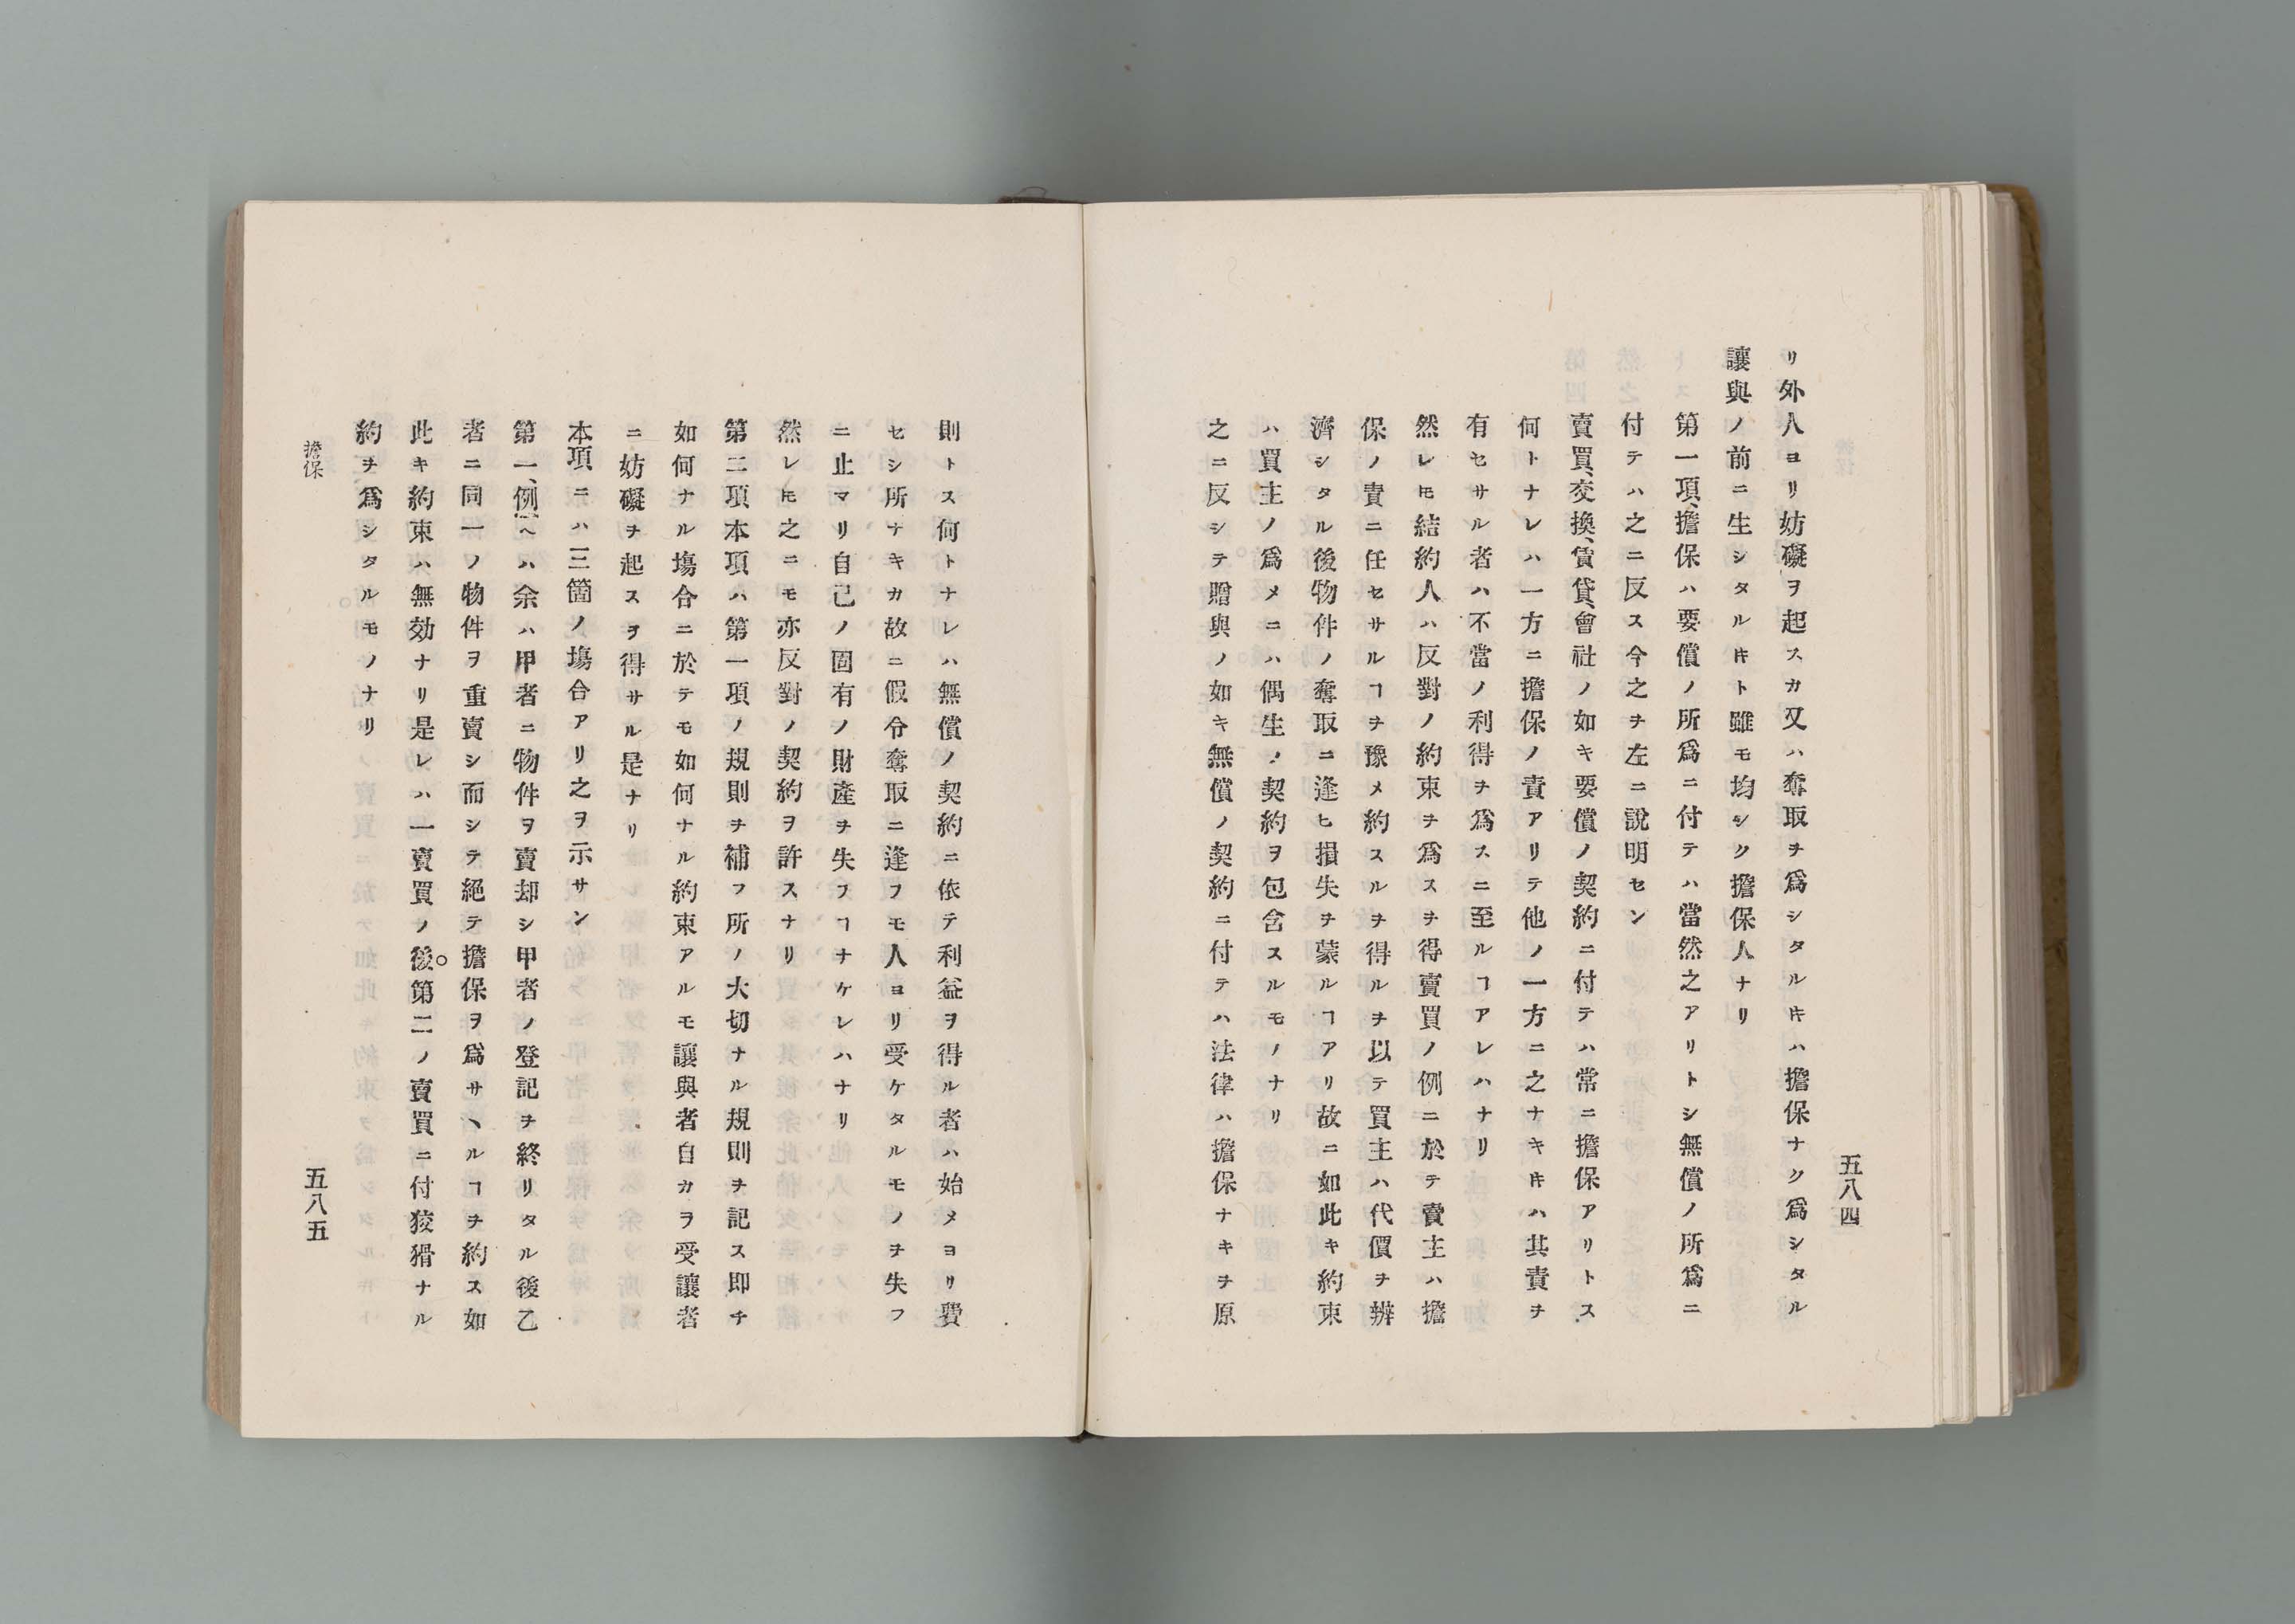 五八四
リ外人ヨリ妨礙ヲ起スカ又ハ奪取ヲ爲シタルﾄｷハ擔保ナク爲シタル
讓與ノ前ニ生シタルﾄｷト雖モ均シク擔保人ナリ
第一項、擔保ハ要償ノ所爲ニ付テハ當然之アリトシ無償ノ所爲ニ
付テハ之ニ反ス今之ヲ左ニ說明セン
賣買、交換、賃貸、會社ノ如キ要償ノ契約ニ付テハ常ニ擔保アリトス
何トナレハ一方ニ擔保ノ責アリテ他ノ一方ニ之ナキﾄｷハ其責ヲ
有セサル者ハ不當ノ利得ヲ爲スニ至ルヿアレハナリ
然レﾄﾓ結約人ハ反對ノ約束ヲ爲スヲ得賣買ノ例ニ於テ賣主ハ擔
保ノ責ニ任セサルヿヲ豫メ約スルヲ得ルヲ以テ買主ハ代價ヲ辨
濟シタル後物件ノ奪取ニ逢ヒ損失ヲ蒙ルヿアリ故ニ如此キ約束
ハ買主ノ爲メニハ偶生ノ契約ヲ包含スルモノナリ
之ニ反シテ贈與ノ如キ無償ノ契約ニ付テハ法律ハ擔保ナキヲ原
則トス何トナレハ無償ノ契約ニ依テ利益ヲ得ル者ハ始メヨリ費
セシ所ナキカ故ニ假令奪取ニ逢フモ人ヨリ受ケタルモノヲ失フ
ニ止マリ自己ノ固有ノ財產ヲ失フヿナケレハナリ
然レﾄﾓ之ニモ亦反對ノ契約ヲ許スナリ
第二項本項ハ第一項ノ規則ヲ補フ所ノ大切ナル規則ヲ記ス即チ
如何ナル塲合ニ於テモ如何ナル約束アルモ讓與者自カラ受讓者
ニ妨礙ヲ起スヲ得サル是ナリ
本項ニハ三箇ノ塲合アリ之ヲ示サン
第一、例ヘハ余ハ甲者ニ物件ヲ賣却シ甲者ノ登記ヲ終リタル後乙
者ニ同一ノ物件ヲ重賣シ而シテ絕テ擔保ヲ爲サヽルヿヲ約ス如
此キ約束ハ無効ナリ是レハ一賣買ノ後。第二ノ賣買ニ付狡猾ナル
約ヲ爲シタルモノナリ
擔保
五八五